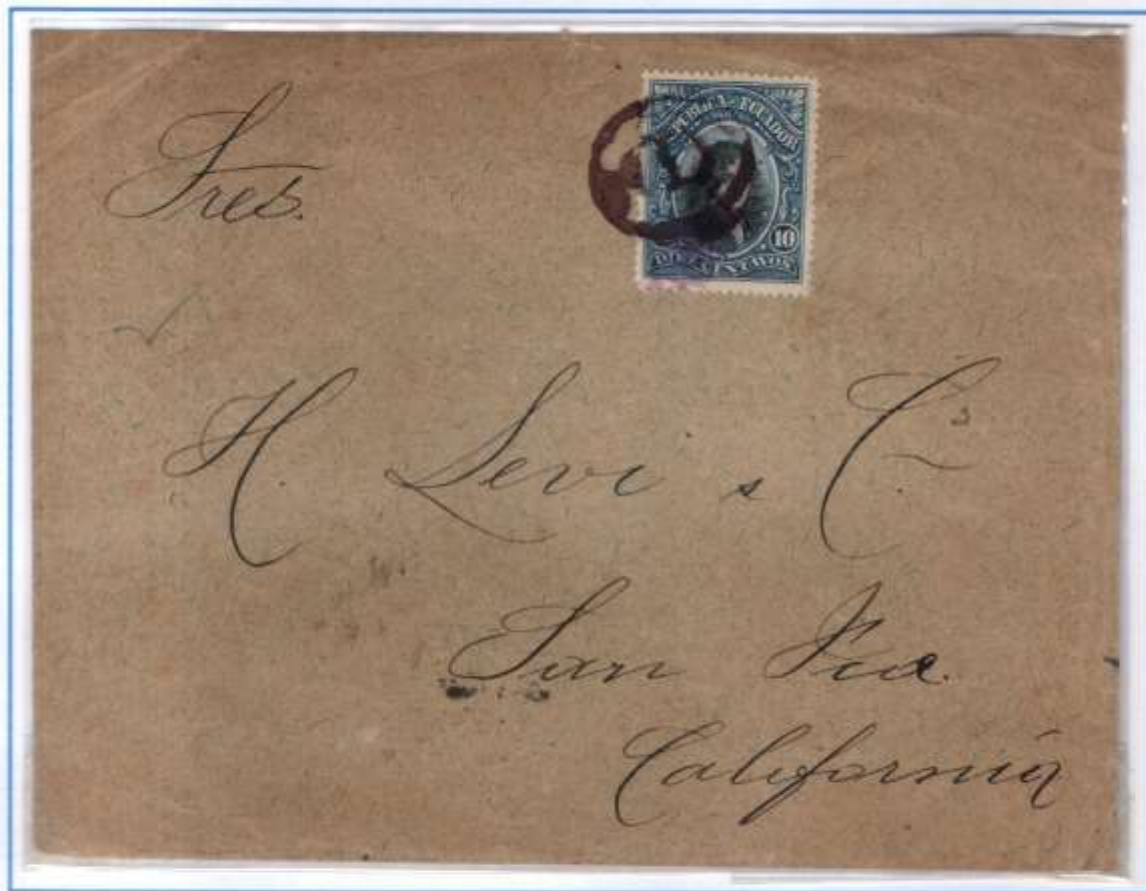 Sres.
REPUBLICA DEL ECUADOR
10
DIEZ CENTAVOS
H. Levi & Cª
San Fco.
California